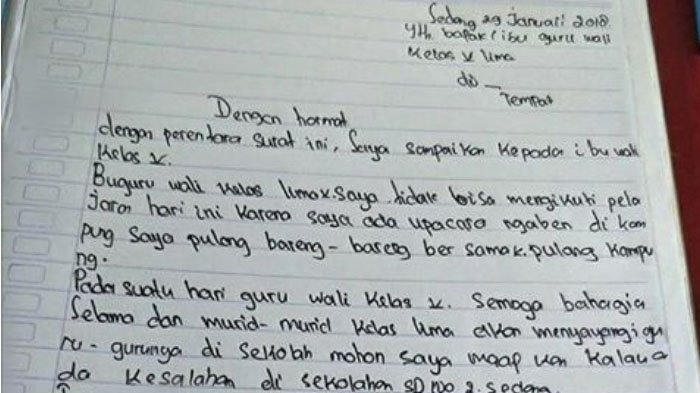 Sedang 29 Januari 2018
Yth. bapak / ibu guru wali
Kelas V lima
di
Tempat
Dengan hormat
dengan perentara surat ini, Saya sampaikan kepada ibu wali
kelas V.
Buguru wali kelas lima saya tidak bisa mengikuti pela
jaran hari ini karena saya ada upacara ngaben di kam
pung saya pulang bareng-bareng ber sama k. pulang kampu
ng.
Pada suatu hari guru wali kelas V. Semoga bahagia
Selama dan murid-murid kelas lima akan menyayangi gu
ru-gurunya di sekolah mohon saya maap kan kalau a
da kesalahan di sekolahan SD no 2. Sedang